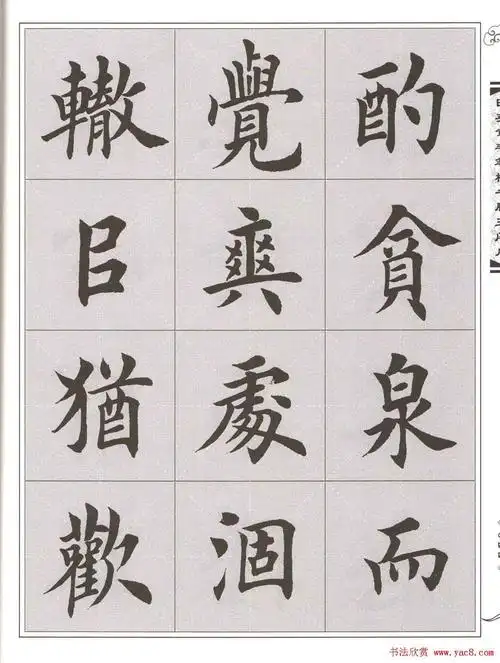 酌貪泉而
覺爽處涸
轍㠯猶歡
书法欣赏 www.yac8.com